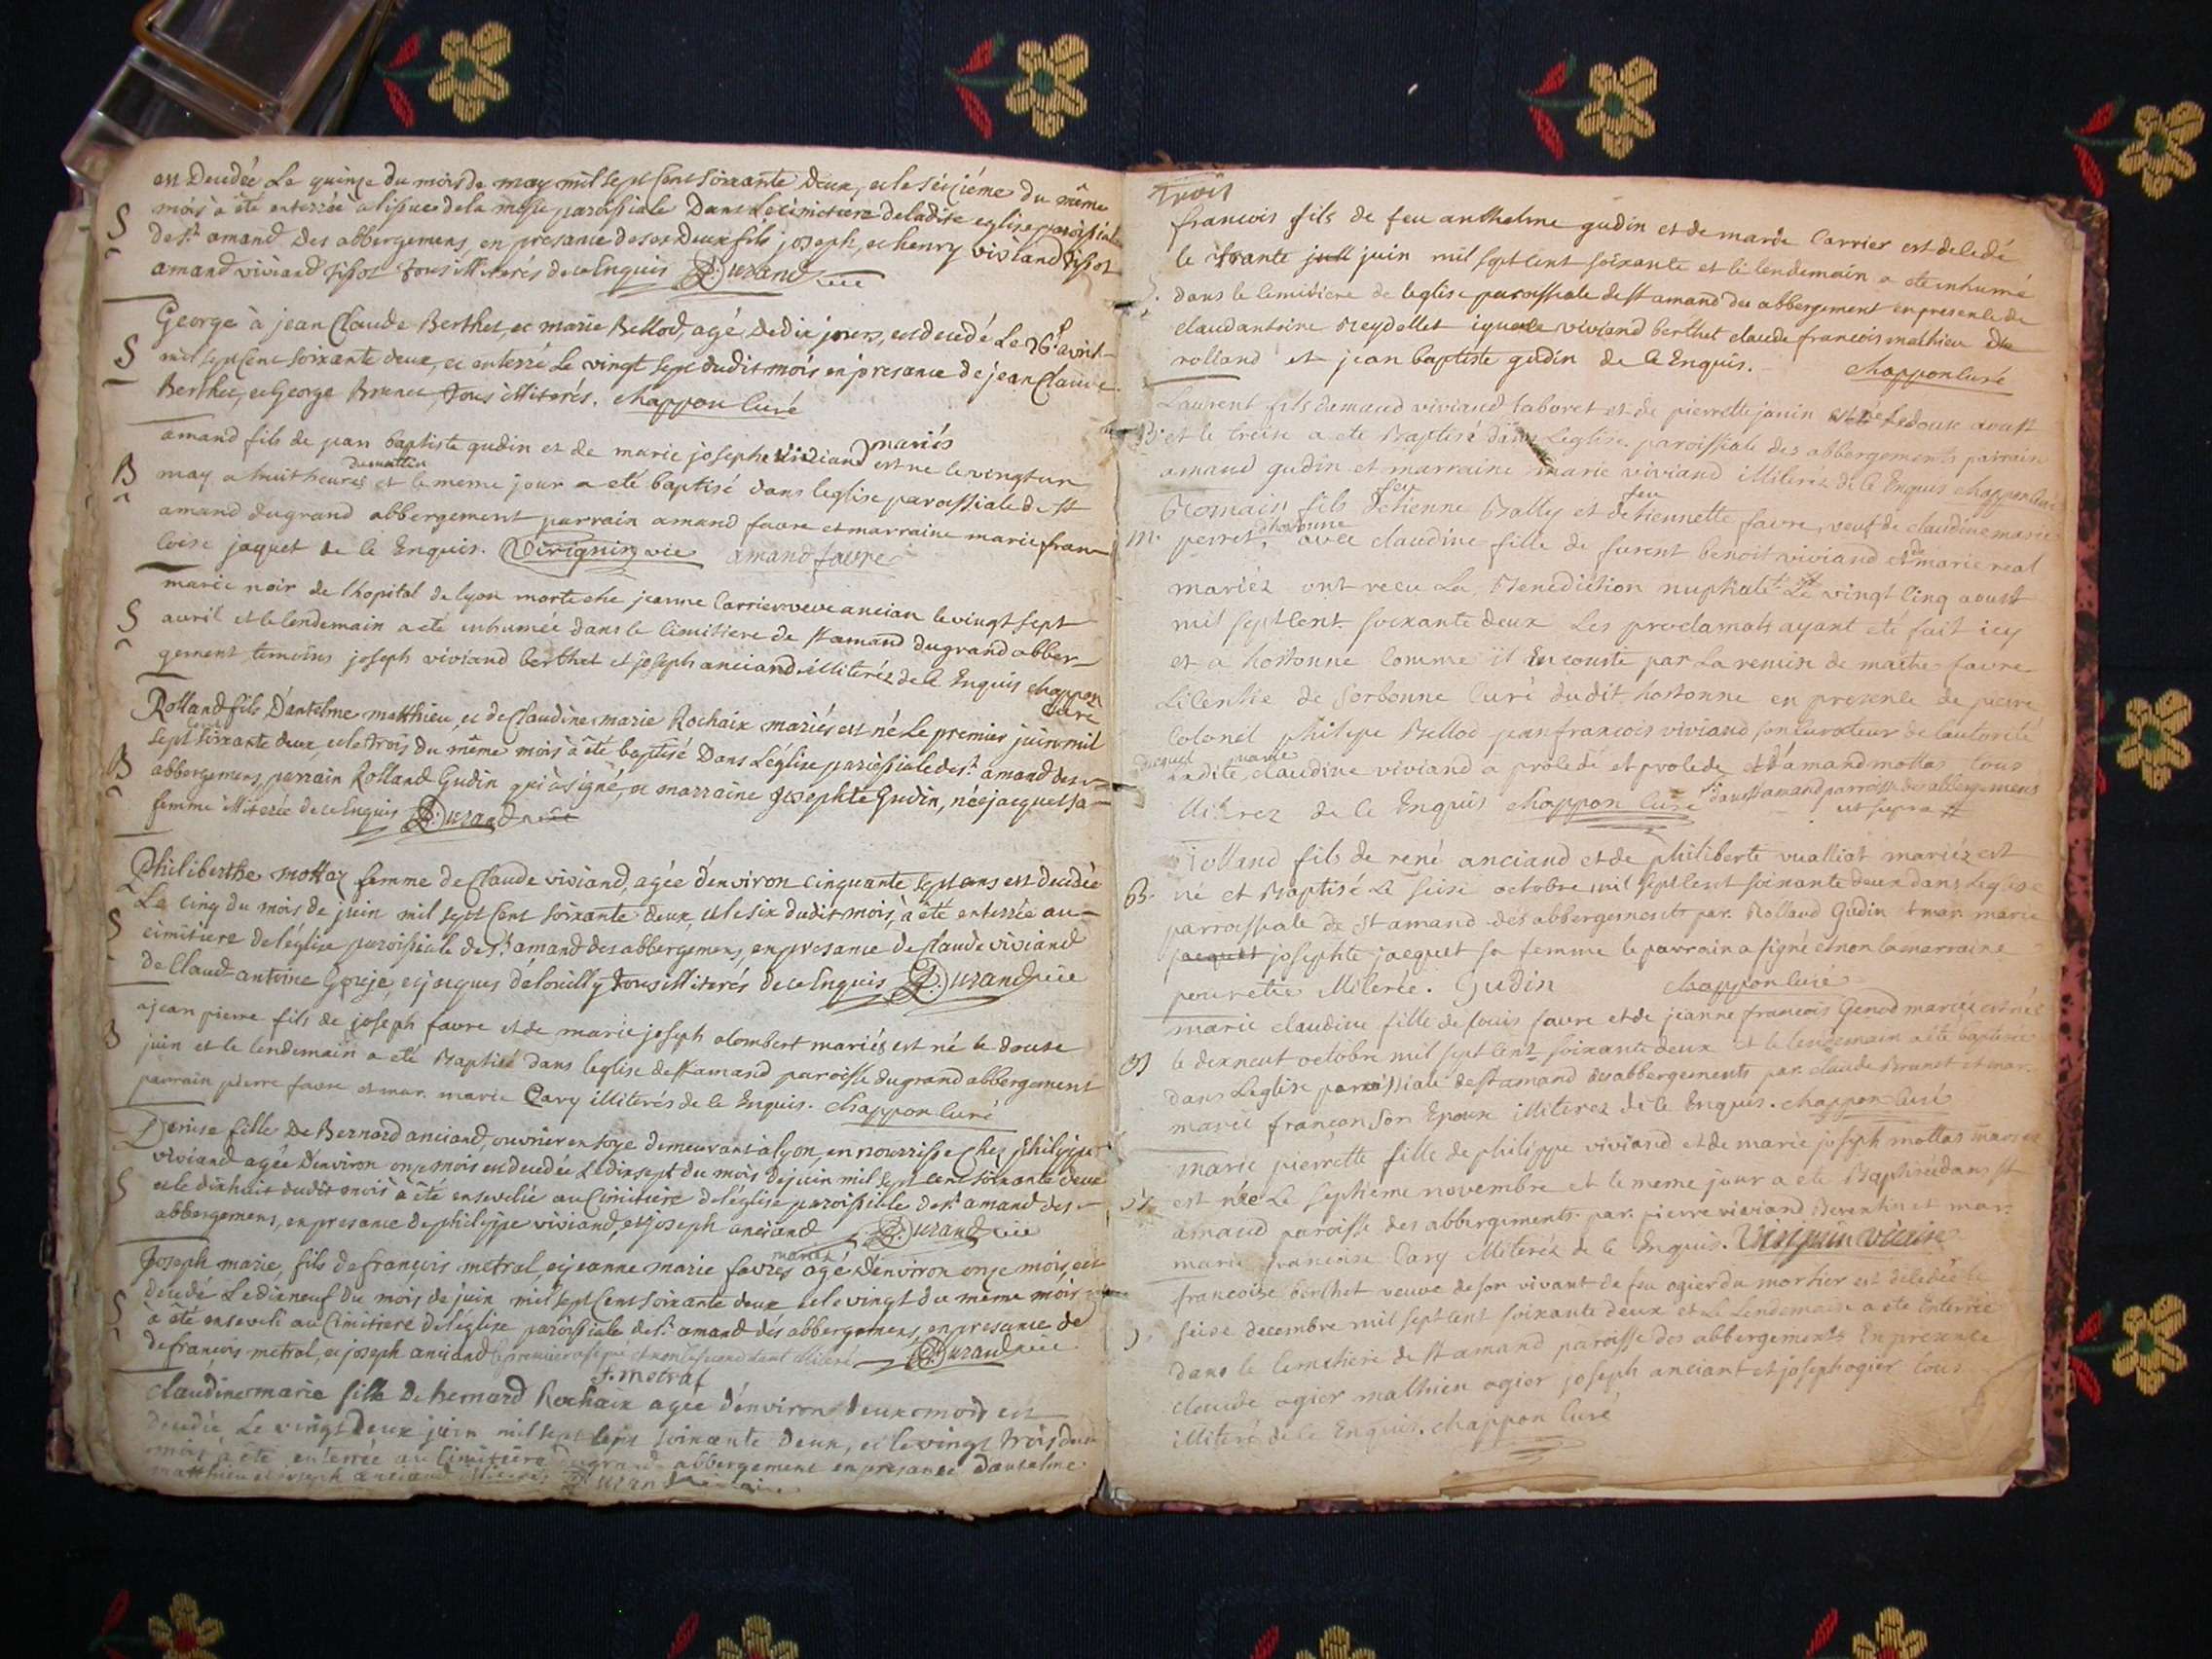 est Decedée Le quinze du mois de may mil sept Cent soixante Deux, et le séiziéme du même
S mois à êté enterrée a lissue de la messe paroissiale Dans Le cimetiere de ladite eglise paroissiale
de st. amand Des abbergemens, en presance de ses Deux fils joseph, et henry viviand tissot
amand viviand tissot tous illiterés de ce Enquis Durand vic
George à jean Claude Berthet, et marie Bellod, agé de dix jours, est decedé Le 26e avril
S mil sept Cent soixante deux, et enterré Le vingt sept dudit mois en presance de jean Claude
Berthet, et George Brunet, tous illiterés. chappon Curé
amand fils de jean baptiste gudin et de marie josephe viviand mariés est ne le vingt un
B may a huit heures du mattin et le meme jour a eté baptisé dans leglise paroissiale de st
amand du grand abbergement parrain amand favre et marraine marie fran
coise jaquet de ce Enquis. Virignin vic amand favre
marie noir de lhopital de lyon morte che jeanne Carrier veve ancian le vingt sept
S avril et le lendemain a eté inhumée dans le cimitiere de st amand du grand abber-
gement temoins joseph viviand berthet et joseph anciand illiteréz de ce Enquis chappon
Curé
Rolland fils D'antelme matthieu, et de Claudine marie Rochaix mariés est né Le premier juin mil
sept cent soixante deux, et le trois du même mois à êté baptisé Dans L'église paroissiale de st. amand des
B abbergemens, parrain Rolland Gudin qui à signé, et marraine josephte Gudin, née jacquet sa
femme illiterée de ce Enquis Durand vic
Philiberthe mottaz femme de Claude viviand, agée d'environ cinquante sept ans est decedée
S Le cinq du mois de juin mil sept Cent soixante deux, et le six dudit mois, à êté enterrée au
cimitiere de l'église paroissiale de st. amand des abbergemens, en presance de Claude viviand
de Claud-antoine Gouje, et jacques delouilly tous illiterés de ce Enquis Durand vic
a jean pierre fils de joseph favre et de marie joseph alombert mariés est né le douse
B juin et le lendemain a eté Baptisé dans leglise de st amand paroisse du grand abbergement
parrain pierre favre et mar. marie Cary illiterés de ce Enquis. chappon Curé
Denise fille De Bernard anciand, ouvrier en soye demeurant a lyon, en nourrisse Chez philippe
viviand agée D'environ onze mois est decedée Le dix sept du mois de juin mil sept cent soixante deux
S et le dixhuit dudit mois à êté ensevelie au Cimitiere de l'église paroissiale de st. amand des
abbergemens, en presance de philippe viviand, et joseph anciand Durand vic
Joseph marie, fils de françois metral, et jeanne marie favres mariés agé D'environ onze mois, est
decedé Le dix neuf du mois de juin mil sept Cent soixante deux et le vingt du même mois
S à êté enseveli au Cimitiere de l'église paroissiale de st. amand dés abbergemens, en presance de
de françois metral, et joseph anciand le premier a signé et non le second etant illiteré Durand vic
f. metral
claudine marie fille De bernard Rochaix agée d'environ deux mois est
decedée Le vingt Deux juin mil sept Cent soixante Deux, et le vingt trois du
mois à êté enterrée au Cimitiere du grand abbergement en presance d'antelme
matthieu et joseph anciand illiterés Durand vicaire
Trois
francois fils de feu anthelme gudin et de marie Carrier est decedé
le trante juin mil sept cent soixante et le lendemain a eté inhumé
S. dans le Cimitiere de leglise paroissiale de st amand des abbergement en presence de
claud antoine Reydellet viviand berthet claude francois mathieu
rolland et jean baptiste gudin de ce Enquis. chappon Curé
Laurent fils damand viviand taboret et de pierrette janin est ne le douse aoust
B. et le treise a eté Baptisé dans Leglise paroissiale des abbergements parrain
amand gudin et marraine marie viviand illiteréz de ce Enquis chappon Curé
Romain fils de feu etienne Bally et de feu etiennette favre, veuf de claudine marie
m. perret, dhostonne avec claudine fille de furent benoit viviand et de marie real
mariéz ont recu La Benediction nuptiale Le vingt Cinq aoust
mil sept cent soixante deux Les proclamats ayant eté fait icy
et a hostonne Comme il En conste par La remise de maitre favre
Licentié de Sorbonne Curé dudit hostonne en presence de pierre
Colonel philipe Bellod jean francois viviand son Curateur de lautorité
duquel ladite marie claudine viviand a procedé et procede et d'amand mottas tous
illiterez de ce Enquis chappon Curé dans st amand parroisse des abbergemens
ut supra
Rolland fils de rené anciand et de philiberte vualliot mariéz est
B. né et Baptisé Le seise octobre mil sept cent soixante deux dans Leglise
parroissiale de st amand des abbergements par. Rolland Gudin et mar. marie
jacquet josephte jacquet sa femme le parrain a signé et non la marraine
pour etre illiterée. Gudin chappon Curé
marie claudine fille de louis favre et de jeanne francois Genod mariez est née
B le dixneuf octobre mil sept cent soixante deux et le lendemain a eté baptisée
dans Leglise paroissiale de st amand des abbergements par. claude Brunet et mar.
marie françon son Epouse illiterez de ce Enquis. chappon Curé
marie pierrette fille de philippe viviand et de marie joseph mottas mariez
B. est née Le septieme novembre et le meme jour a eté Baptisée dans st
amand paroisse des abbergements par. pierre viviand et mar.
marie francoise Cary illiteréz de ce Enquis. Virignin vicaire
francoise berthet veuve de son vivant de feu ogier du mortier est decedée le
S. seise decembre mil sept cent soixante deux et Le Lendemain a eté Enterrée
dans le Cemitiere de st amand paroisse des abbergements En presence
claude ogier mathieu ogier joseph anciant et joseph ogier tous
illiteré de ce Enquis. chappon Curé